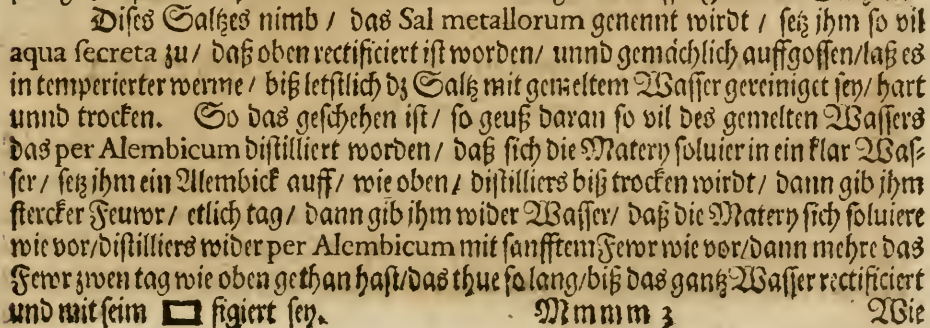 Dises Saltzes nimb / das Sal metallorum genennt wirdt / setz ihm so vil
aqua secreta zu / daß oben rectificiert ist worden / unnd gemächlich auffgossen / laß es
in temperierter werme / biß letstlich dz Saltz mit gemeltem Wasser gereiniget sey / hart
unnd trocken. So das geschehen ist / so geuß daran so vil des gemelten Wassers
das per Alembicum distilliert worden / daß sich die Matery soluier in ein klar Was⸗
ser / setz ihm ein Alembick auff / wie oben / distilliers biß trocken wirdt / dann gib jhm
stercker Feuwr / etlich tag / dann gib jhm wider Wasser / daß die Matern sich soluiere
wie vor / distilliers wider per Alembicum mit sanfftem Fewr wie vor / dann mehre das
Fewr zwen tag wie oben gethan hast / das thue so lang / biß das gantz Wasser rectificiert
und mit seim □ figiert sey. Mmmm 3 Wie